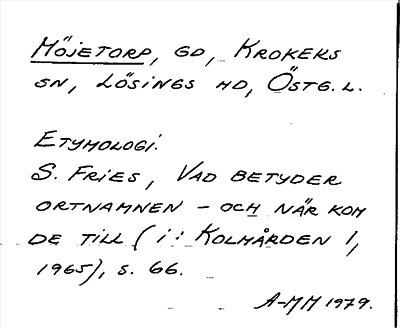 Möjetorp, gd, Krokeks
sn, Lösings hd, Östg. l.
Etymologi.
S. Fries, Vad betyder
ortnamnen – och när kom
de till (i: Kolmården 1,
1965), s. 66.
A-MM 1979.